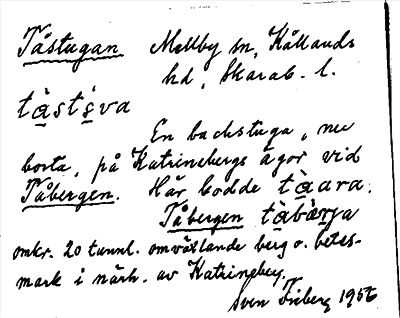 Tåstugan Mellby sn, Kållands
hd, Skarab. l.
tàstṡva
En backstuga, nu
borta, på Katrinebergs ägor vid
Tåbergen. Här bodde tàara.
Tåbergen tàbärja
omkr. 20 tunnl. omväxlande berg o. betes-
mark i närh. av Katrineberg.
Sven Friberg 1956